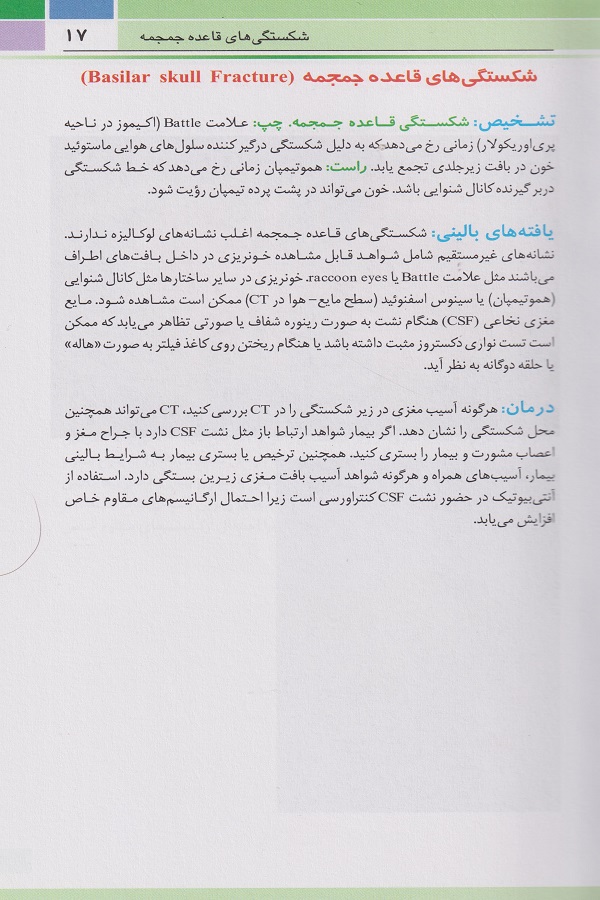 شکستگی‌های قاعده جمجمه
۱۷
شکستگی‌های قاعده جمجمه (Basilar skull Fracture)
تشـخیص: شکستـگی قـاعده جـمجمه. چپ: عـلامت Battle (اکیموز در ناحیه
پری‌اوریکولار) زمانی رخ می‌دهد که به دلیل شکستگی درگیر کننده سلول‌های هوایی ماستوئید
خون در بافت زیرجلدی تجمع یابد. راست: هموتیمپان زمانی رخ می‌دهد که خط شکستگی
دربر گیرنده کانال شنوایی باشد. خون می‌تواند در پشت پرده تیمپان رؤیت شود.
یافته‌های بالینی: شکستگی‌های قاعده جـمجمه اغلب نشانه‌های لوکالیزه ندارند.
نشانه‌های غیرمستقیم شامل شواهد قابل مشاهده خونریزی در داخل بافت‌های اطراف
می‌باشند مثل علامت Battle یا raccoon eyes. خونریزی در سایر ساختارها مثل کانال شنوایی
(هموتیمپان) یا سینوس اسفنوئید (سطح مایع– هوا در CT) ممکن است مشاهده شود. مایع
مغزی نخاعی (CSF) هنگام نشت به صورت رینوره شفاف یا صورتی تظاهر می‌یابد که ممکن
است تست نواری دکستروز مثبت داشته باشد یا هنگام ریختن روی کاغذ فیلتر به صورت «هاله»
یا حلقه دوگانه به نظر آید.
درمان: هرگونه آسیب مغزی در زیر شکستگی را در CT بررسی کنید، CT می‌تواند همچنین
محل شکستگی را نشان دهد. اگر بیمار شواهد ارتباط باز مثل نشت CSF دارد با جراح مغز و
اعصاب مشورت و بیمار را بستری کنید. همچنین ترخیص یا بستری بیمار به شرایط بالینی
بیمار، آسیب‌های همراه و هرگونه شواهد آسیب بافت مغزی زیرین بستگی دارد. استفاده از
آنتی‌بیوتیک در حضور نشت CSF کنتراورسی است زیرا احتمال ارگانیسم‌های مقاوم خاص
افزایش می‌یابد.